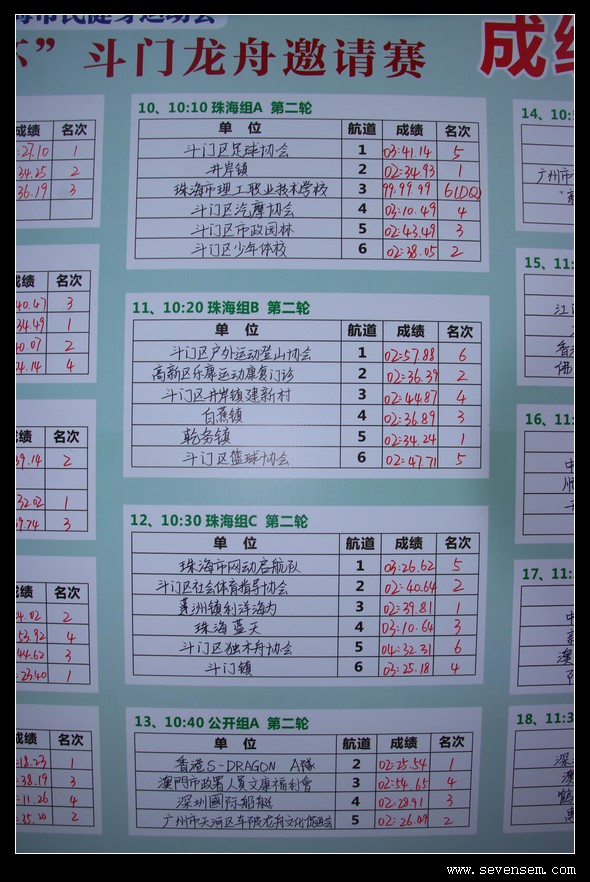 海市民健身运动会
杯”斗门龙舟邀请赛
成绩
成绩 名次
:27.10 1
34.25 2
36.19 3
绩 名次
40.47 3
34.49 1
40.07 2
4
绩 名次
39.14 2
32.02 1
39.74 3
绩 名次
4.02 2
53.92 4
44.62 3
23.40 1
绩 名次
18.23 1
38.19 3
11.26 4
35.20 2
10、10:10 珠海组A 第二轮
单 位 航道 成绩 名次
斗门区足球协会 1 03:41.14 5
井岸镇 2 02:34.93 1
珠海市理工职业技术学校 3 99:99.99 6(DQ)
斗门区汽摩协会 4 03:10.49 4
斗门区市政园林 5 02:43.49 3
斗门区少年体校 6 02:38.05 2
11、10:20 珠海组B 第二轮
单 位 航道 成绩 名次
斗门区户外运动登山协会 1 02:57.88 6
高新区乐康运动康复门诊 2 02:36.39 2
斗门区井岸镇建新村 3 02:44.87 4
白蕉镇 4 02:36.89 3
乾务镇 5 02:34.24 1
斗门区篮球协会 6 02:47.71 5
12、10:30 珠海组C 第二轮
单 位 航道 成绩 名次
珠海市网动启航队 1 03:26.62 5
斗门区社会体育指导协会 2 02:40.64 2
莲洲镇利洋海内 3 02:39.81 1
珠海蓝天 4 03:10.64 3
斗门区独木舟协会 5 04:32.31 6
斗门镇 6 03:25.18 4
13、10:40 公开组A 第二轮
单 位 航道 成绩 名次
香港S-DRAGON A隊 2 02:25.54 1
澳門市政署人員文康福利會 3 02:54.65 4
深圳國際船艇 4 02:28.91 3
广州市天河区车陂龙舟文化促进会 5 02:26.09 2
14、10:5
广州市
15、11:
江
香
佛
16、11:
中
顺
17、11:
中
澳
18、11:3
深
澳
鹤
www.sevensem.com